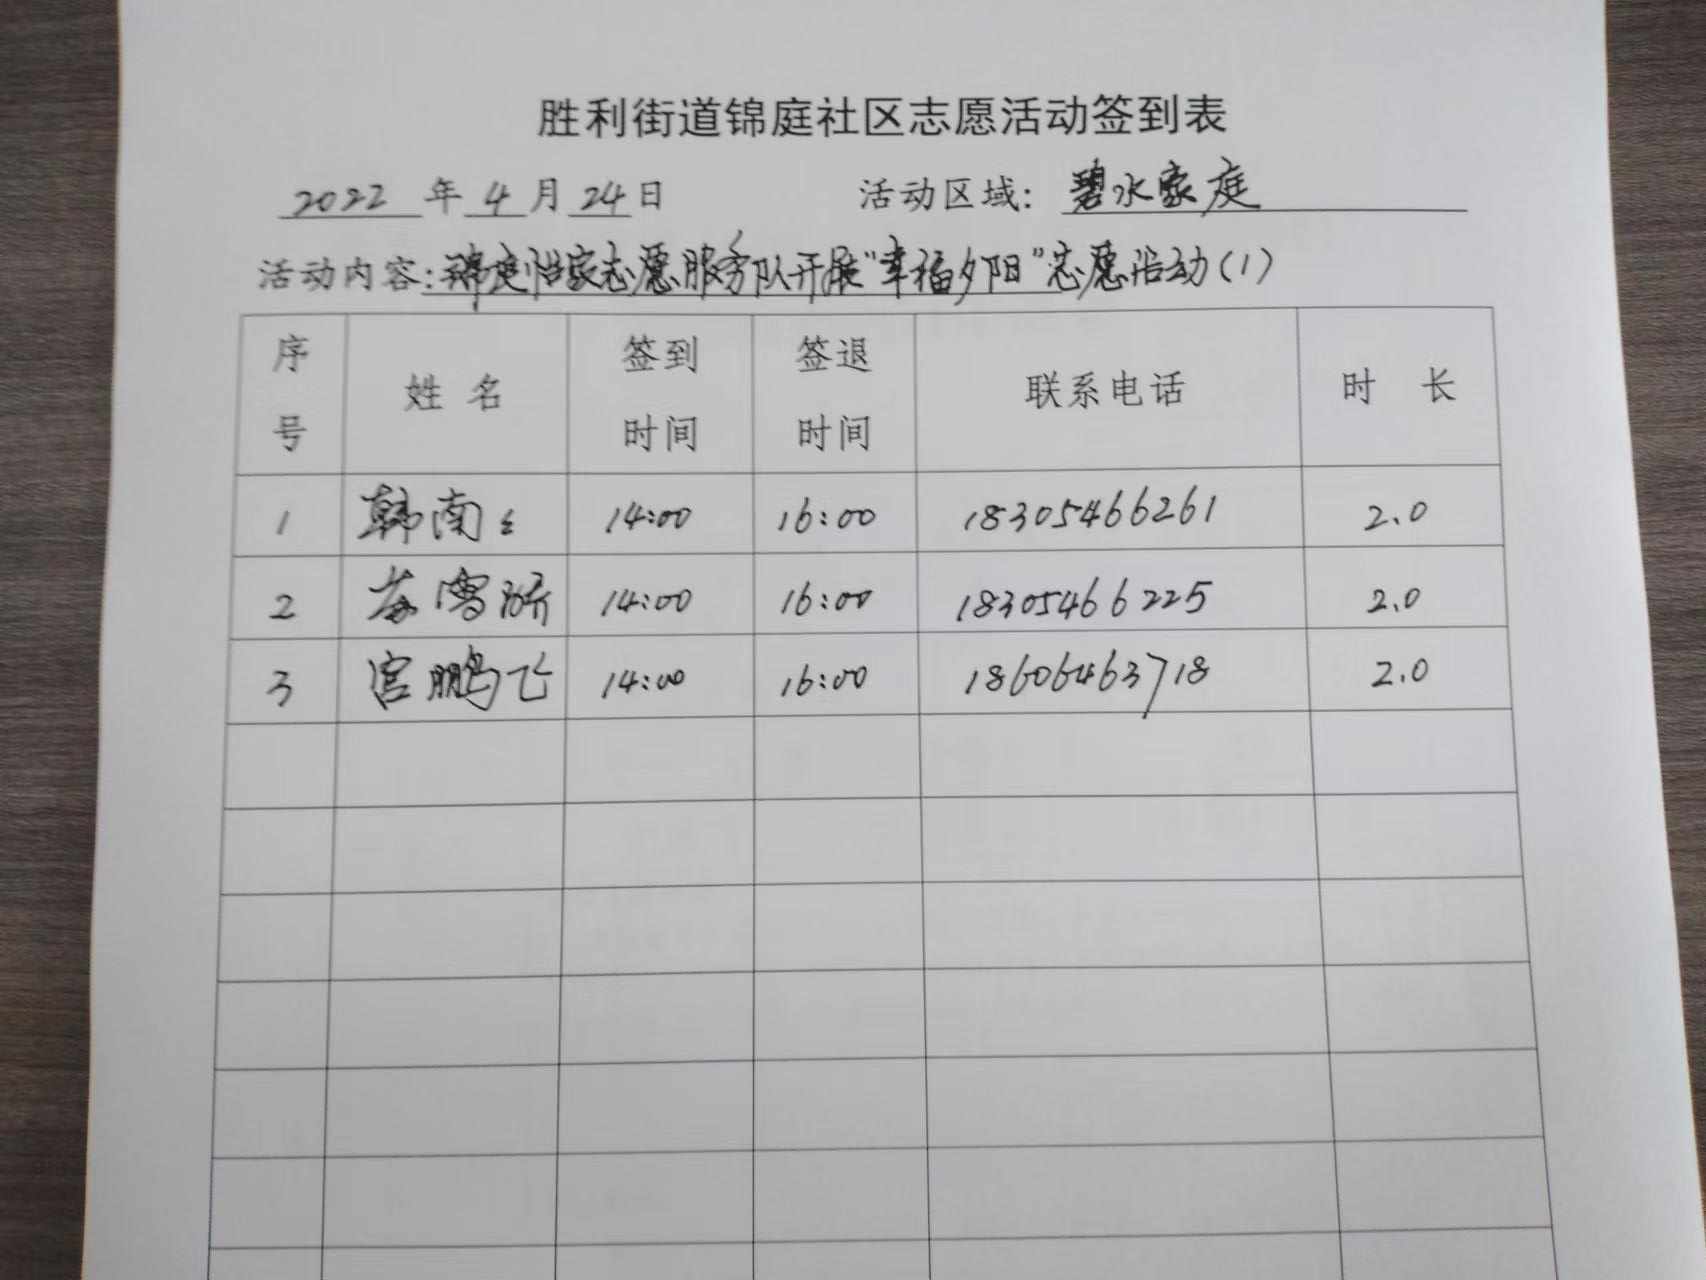 胜利街道锦庭社区志愿活动签到表
2022年4月24日 活动区域：碧水家庭
活动内容：锦庭怡家志愿服务队开展“幸福夕阳”志愿活动（1）
序号 姓名 签到时间 签退时间 联系电话 时长
1 韩南 14:00 16:00 18305466261 2.0
2 14:00 16:00 18305466225 2.0
3 宫鹏飞 14:00 16:00 18606463718 2.0